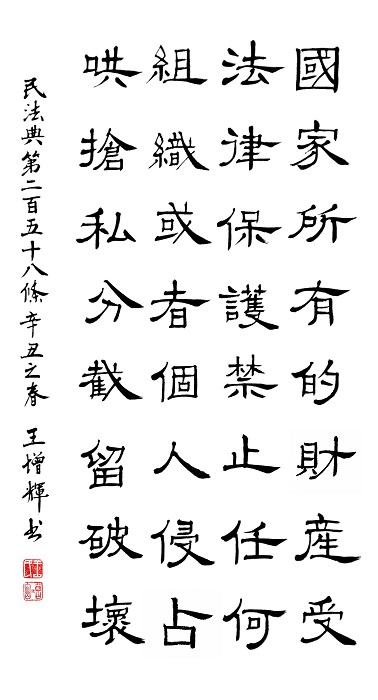 國家所有的財產受
法律保護禁止任何
組織或者個人侵占
哄搶私分截留破壞
民法典第二百五十八條辛丑之春 王增輝书